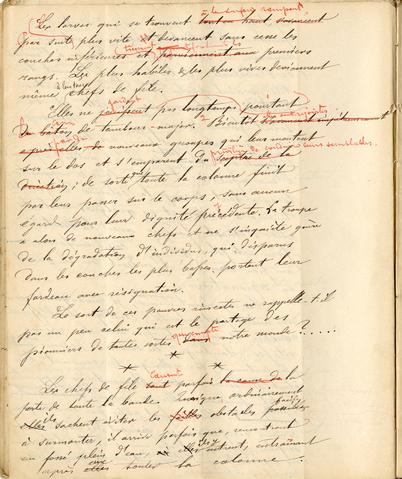 à la surface rampent
Les larves qui se trouvent tout en haut avancent
par suite plus vite et devancent sans cesse les
couches inférieures et parviennent aux premiers
rangs. Les plus habiles & les plus vives deviennent
même chefs de file.
Elles ne jouissent pas longtemps pourtant
du bâton de tambour-major. Bientôt
nouveaux groupes qui leur montent
sur le dos et s'emparent du
; de sorte toute la colonne finit
par leur passer sur le corps, sans aucun
égard pour leur dignité précédente. La troupe
a alors de nouveaux chefs et ne s'inquiète guère
de la dégradation d'individus, qui, disparus
dans les couches les plus basses, portent leur
fardeau avec résignation.
Le sort de ces pauvres insectes ne rappelle-t-il
pas un peu celui qui est le partage des
pionniers de toutes sortes dans notre monde ?.....
* * *
Les chefs de file sont parfois la cause de la
perte de toute la bande. Lorsque,
sachent éviter les obstacles
à surmonter, il arrive parfois que, rencontrant
un fossé plein d'eau, entrent, entraînant
après elles toute la colonne.